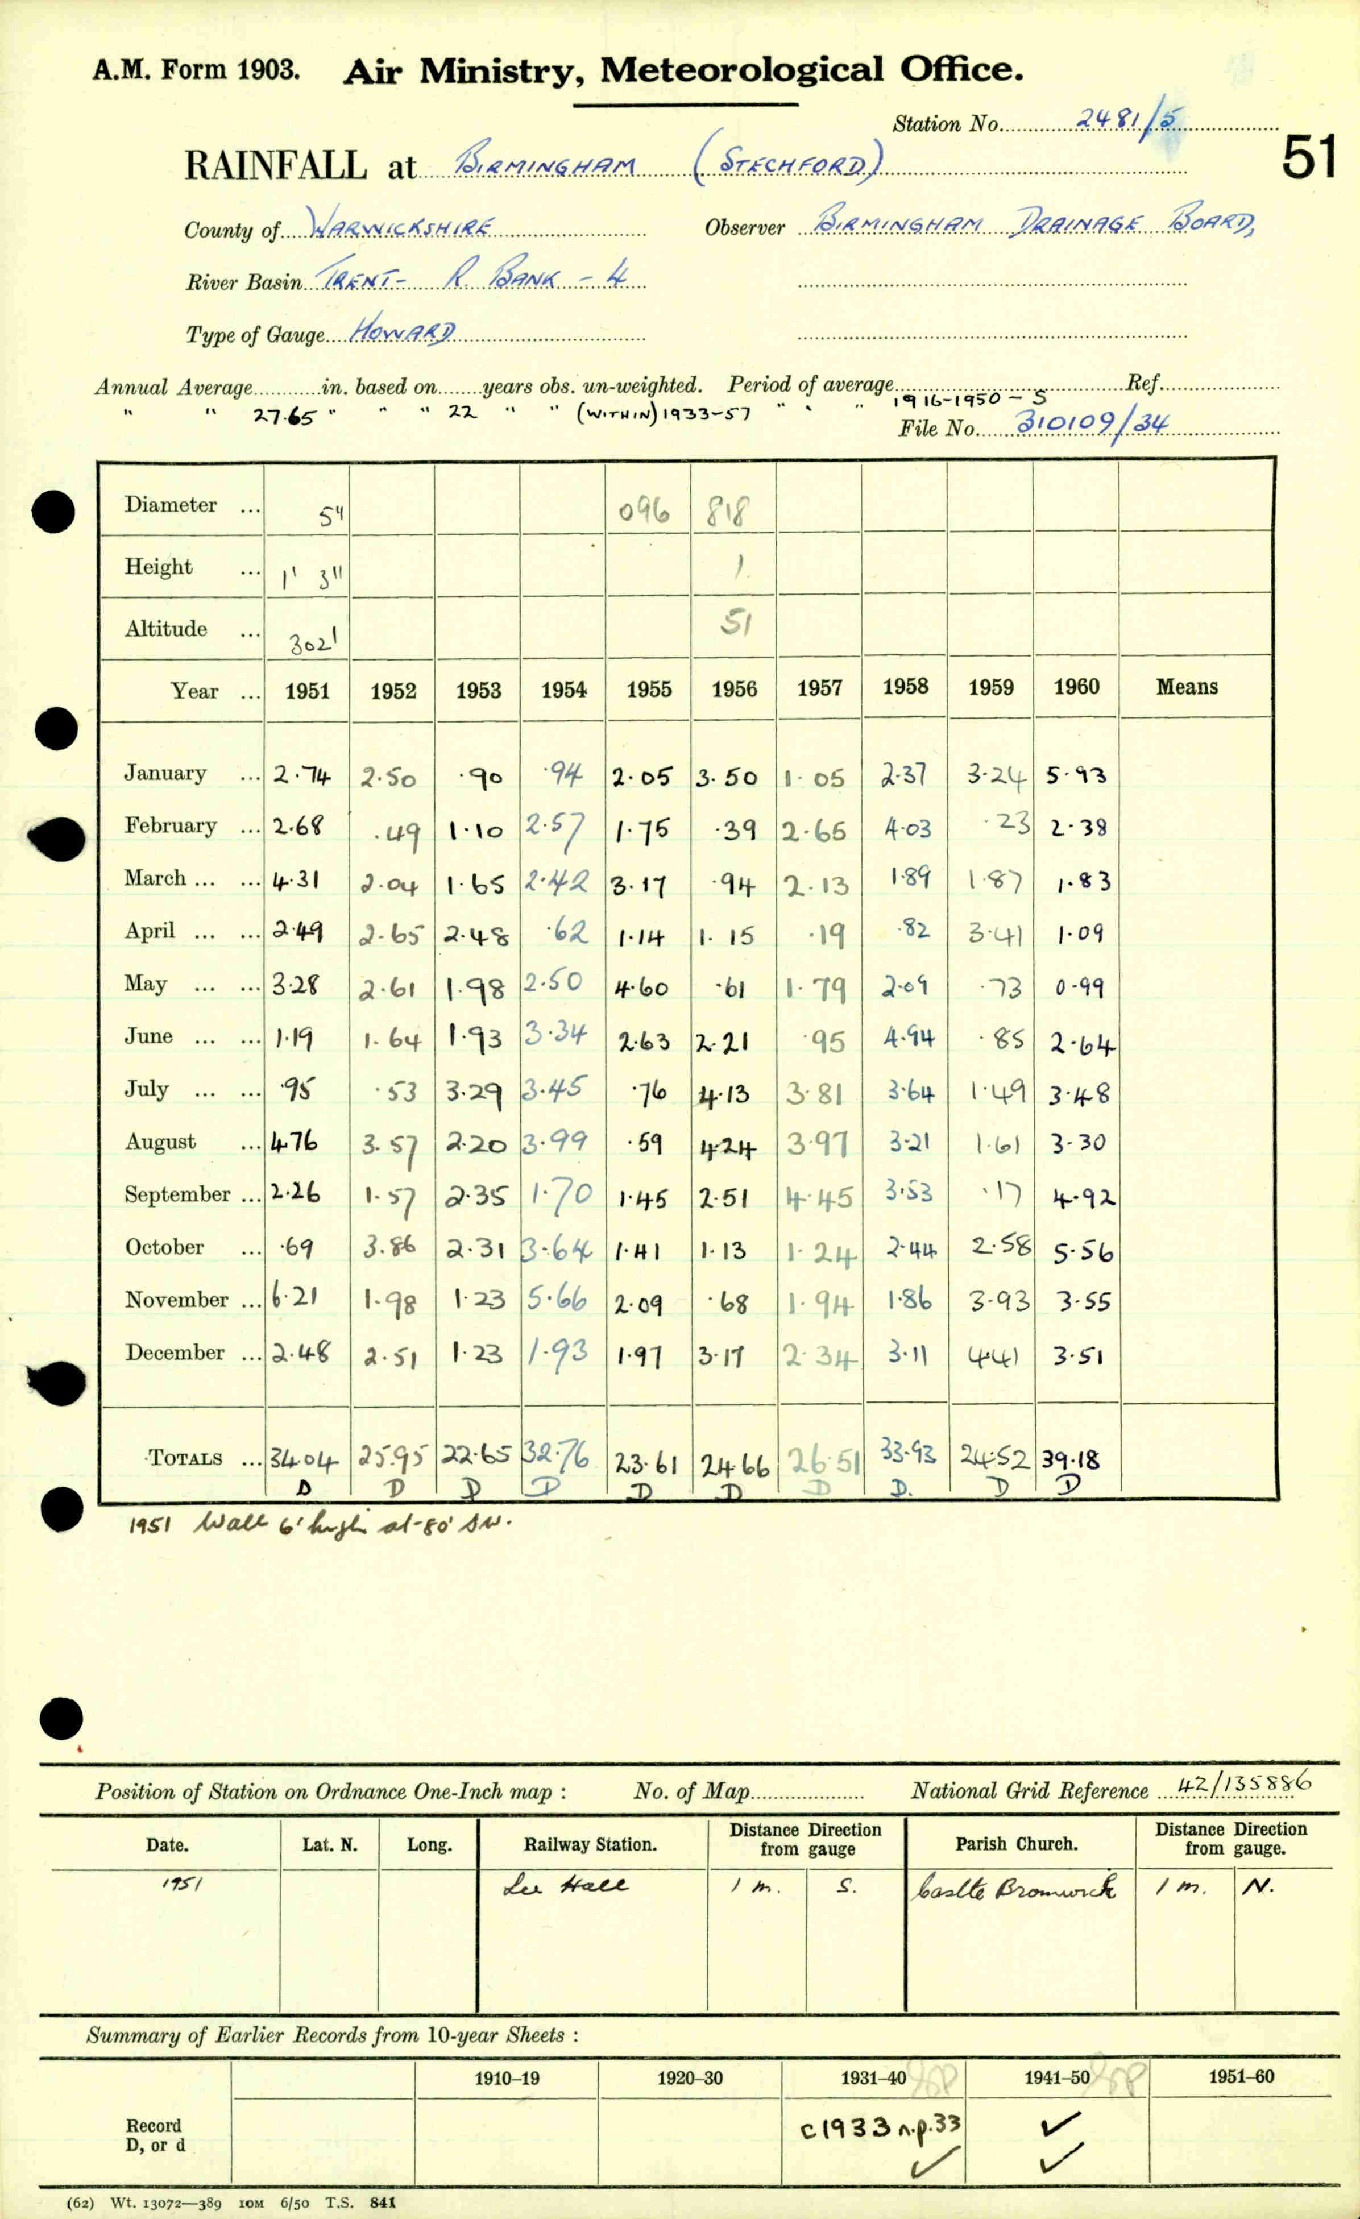 A.M. Form 1903. Air Ministry, Meteorological Office.
Station No. 2481/5
51
RAINFALL at BIRMINGHAM (STECHFORD)
County of WARWICKSHIRE Observer BIRMINGHAM DRAINAGE BOARD,
River Basin TRENT- R. BANK - 4
Type of Gauge HOWARD
Annual Average in. based on years obs. un-weighted. Period of average Ref.
" " 27.65 " " " 22 " " (WITHIN) 1933-57 " " " 1916-1950 - S
File No. 310109/34
Diameter ... 5" 096 818
Height ... 1' 3" 1
Altitude ... 302' 51
Year ... 1951 1952 1953 1954 1955 1956 1957 1958 1959 1960 Means
January ... 2.74 2.50 .90 .94 2.05 3.50 1.05 2.37 3.24 5.93
February ... 2.68 .49 1.10 2.57 1.75 .39 2.65 4.03 .23 2.38
March ... ... 4.31 2.04 1.65 2.42 3.17 .94 2.13 1.89 1.87 1.83
April ... ... 2.49 2.65 2.48 .62 1.14 1.15 .19 .82 3.41 1.09
May ... ... 3.28 2.61 1.98 2.50 4.60 .61 1.79 2.09 .73 0.99
June ... ... 1.19 1.64 1.93 3.34 2.63 2.21 .95 4.94 .85 2.64
July ... ... .95 .53 3.29 3.45 .76 4.13 3.81 3.64 1.49 3.48
August ... 4.76 3.57 2.20 3.99 .59 4.24 3.97 3.21 1.61 3.30
September ... 2.26 1.57 2.35 1.70 1.45 2.51 4.45 3.53 .17 4.92
October ... .69 3.86 2.31 3.64 1.41 1.13 1.24 2.44 2.58 5.56
November ... 6.21 1.98 1.23 5.66 2.09 .68 1.94 1.86 3.93 3.55
December ... 2.48 2.51 1.23 1.93 1.97 3.17 2.34 3.11 4.41 3.51
TOTALS ... 34.04 25.95 22.65 32.76 23.61 24.66 26.51 33.93 24.52 39.18
D D D D D D D D. D D
1951 Wall 6' high at 80' SW.
Position of Station on Ordnance One-Inch map : No. of Map National Grid Reference 42/135886
Date. Lat. N. Long. Railway Station. Distance Direction from gauge Parish Church. Distance Direction from gauge.
1951 Lea Hall 1 m. S. Caslte Bromwich 1 m. N.
Summary of Earlier Records from 10-year Sheets :
1910–19 1920–30 1931–40 1941–50 1951–60
Record D, or d c1933 n.p.33 ✓ ✓
✓
(62) Wt. 13072—389 10M 6/50 T.S. 841